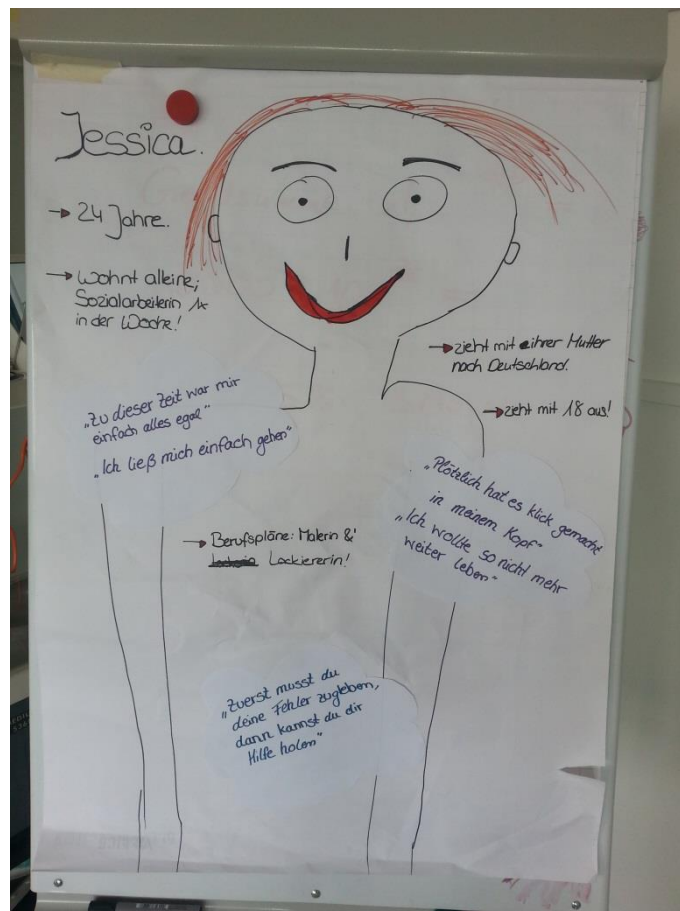 Jessica.
→ 24 Jahre.
→ wohnt alleine;
Sozialarbeiterin 1x
in der Woche!
→ zieht mit ihrer Mutter
nach Deutschland.
→ zieht mit 18 aus!
„Zu dieser Zeit war mir
einfach alles egal"
„Ich ließ mich einfach gehen"
„Plötzlich hat es klick gemacht
in meinem Kopf"
„Ich wollte so nicht mehr
weiter leben"
→ Berufspläne: Malerin &
Lackiererin!
„Zuerst musst du
deine Fehler zugeben,
dann kannst du dir
Hilfe holen"